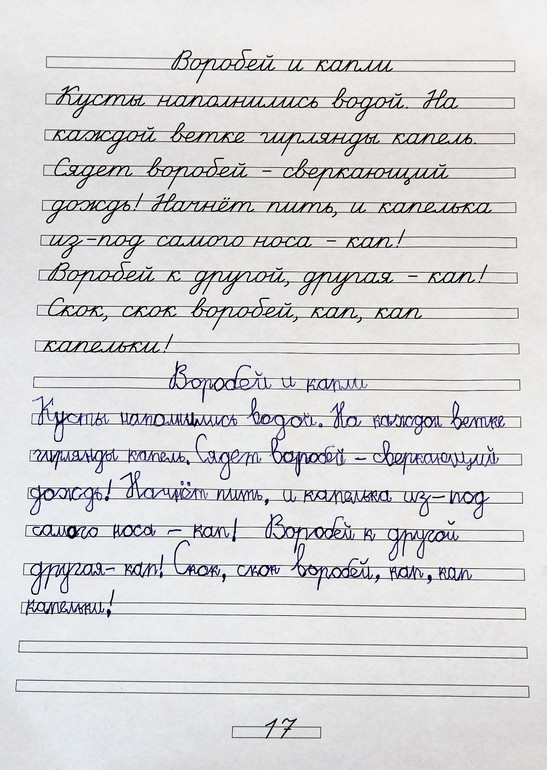 Воробей и капли
Кусты наполнились водой. На
каждой ветке гирлянды капель.
Сядет воробей - сверкающий
дождь! Начнёт пить, и капелька
из-под самого носа - кап!
Воробей к другой, другая - кап!
Скок, скок воробей, кап, кап
капельки!
Воробей и капли
Кусты наполнились водой. На каждой ветке
гирлянды капель. Сядет воробей - сверкающий
дождь! Начнёт пить, и капелька из-под
самого носа - кап! Воробей к другой
другая- кап! Скок, скок воробей, кап, кап
капельки!
17